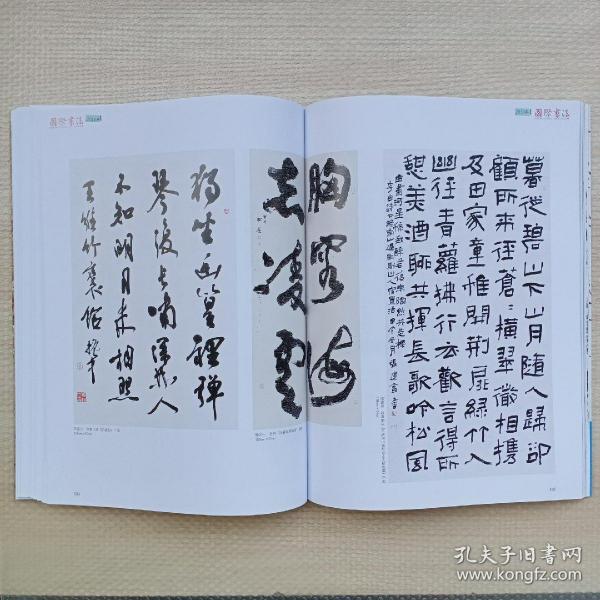 國際書法
獨坐幽篁裡彈
琴復長嘯深林人
不知明月来相照
王維竹裏館
胸容海
志凌雲
國際書法
暮從碧山下山月隨人歸卻
顧所来徑蒼〻橫翠微相携
及田家童稚開荆扉綠竹入
幽徑青蘿拂行衣歡言得所
憩美酒聊共揮長歌吟松風
曲盡河星稀我醉君復樂陶然共忘機
孔夫子旧书网
www.kongfz.com